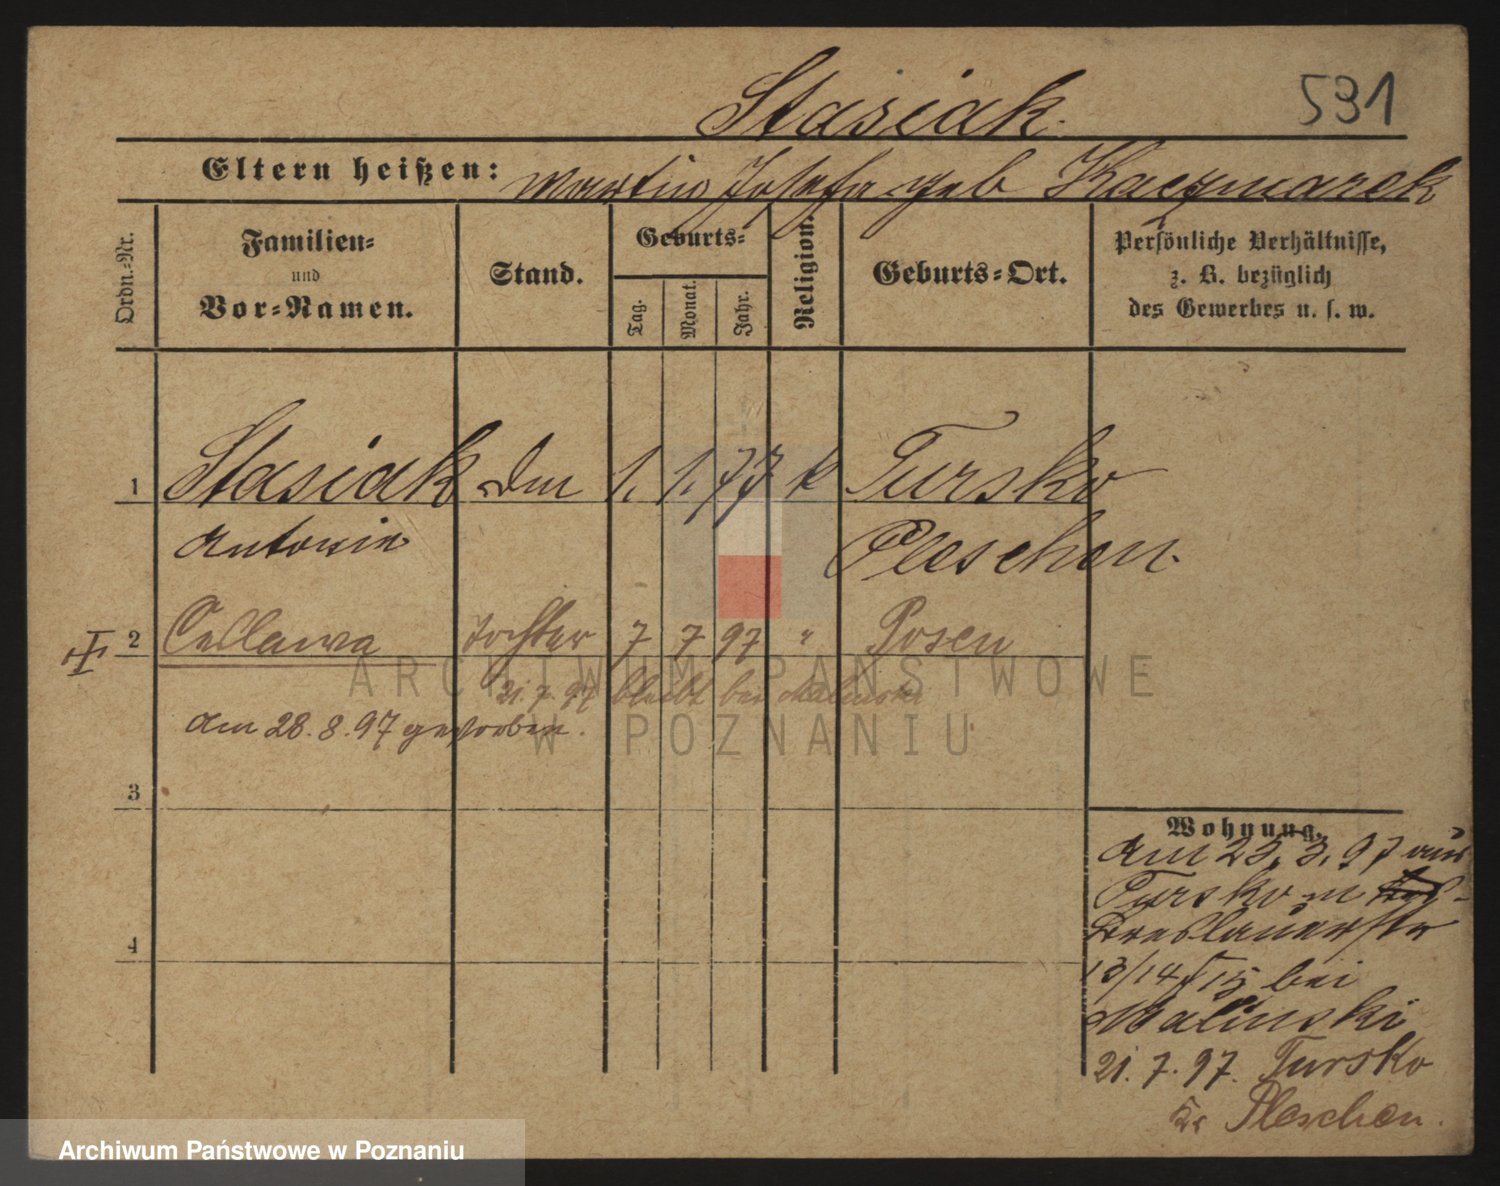 Stasiak.
531
Eltern heißen: Martin Josefa geb Kaczmarek
Ordn.-Nr.
Familien-
und
Vor-Namen.
Stand.
Geburts-
Tag.
Monat.
Jahr.
Religion.
Geburts-Ort.
Persönliche Verhältnisse,
z. B. bezüglich
des Gewerbes u. s. w.
1 Stasiak 1. 1. 77 k Tursko
Antonie Pleschen.
2 Cellawa Tochter 7 7 97 " Posen
21.7.97 bleibt bei Malinski
am 28.8.97 gestorben.
3
4
Wohnung.
Am 25.3.97 aus
Tursko n
Breslauerstr
13/14 15 bei
Malinski
21.7.97. Tursko
Kr Pleschen.
ARCHIWUM PAŃSTWOWE
W POZNANIU
Archiwum Państwowe w Poznaniu